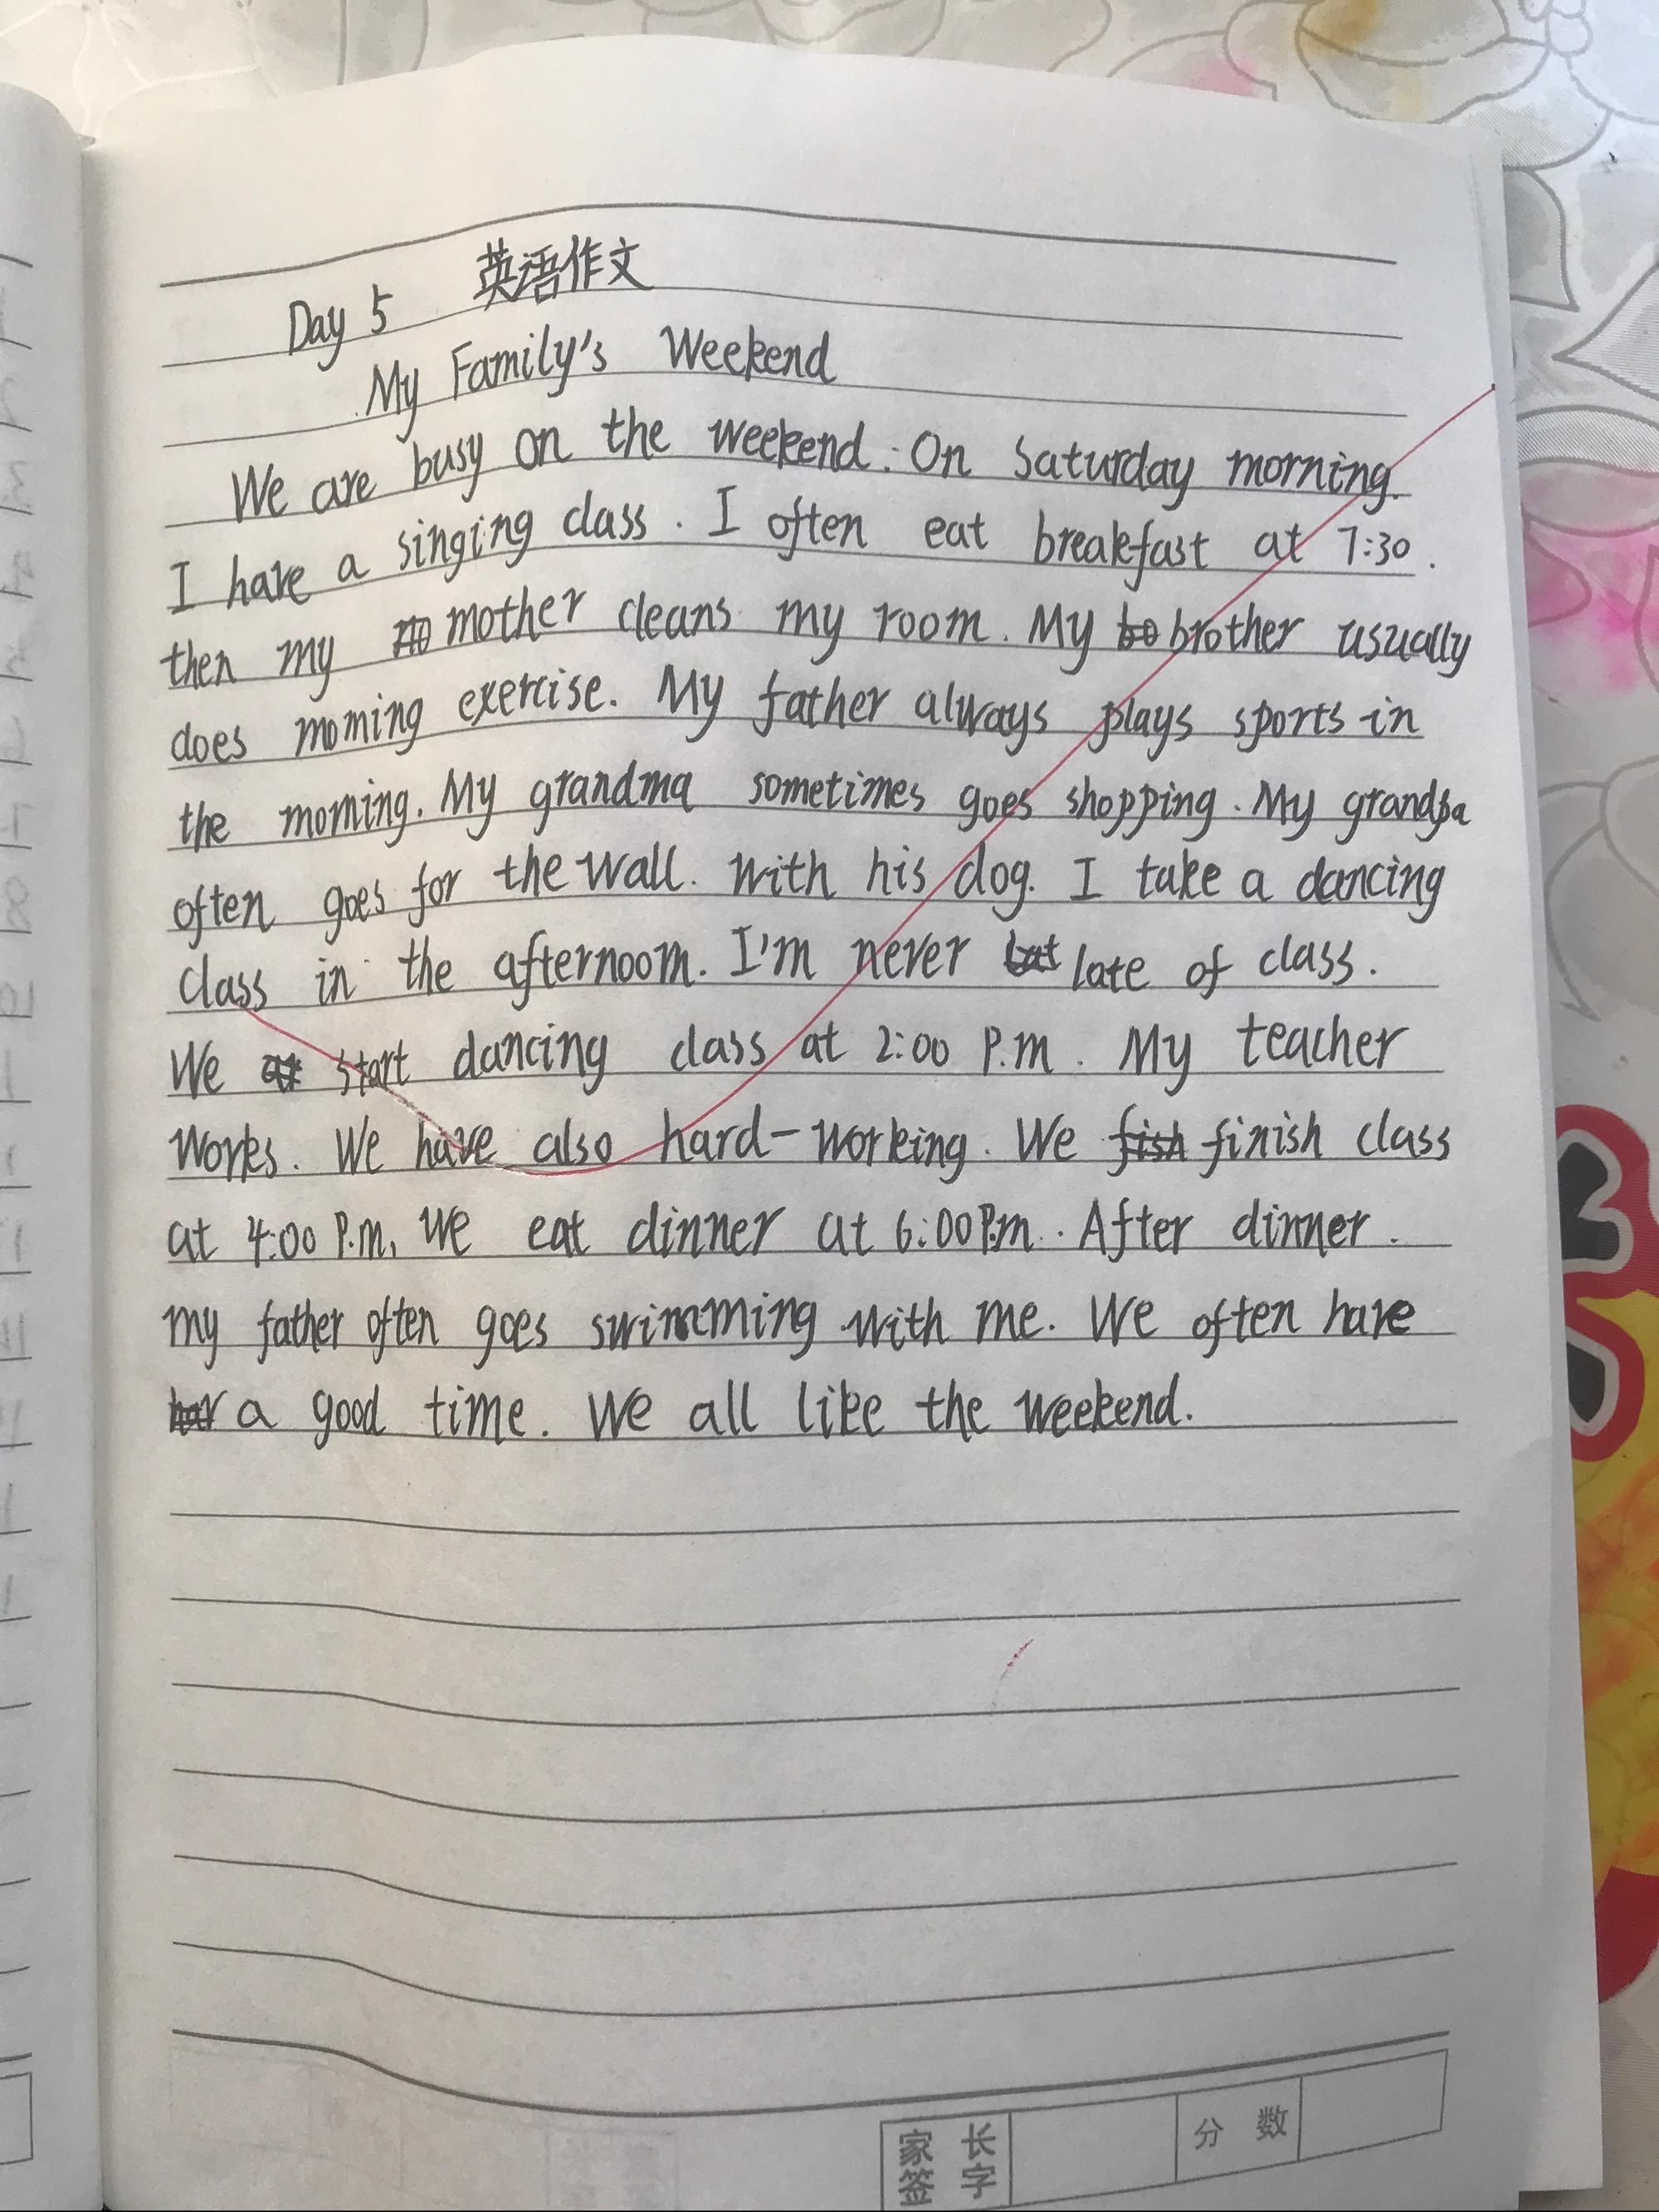 Day 5 英语作文
My Family's Weekend
We are busy on the weekend. On Saturday morning.
I have a singing class. I often eat breakfast at 7:30.
then my mother cleans my room. My brother usually
does morning exercise. My father always plays sports in
the morning. My grandma sometimes goes shopping. My grandpa
often goes for the wall. With his dog. I take a dancing
class in the afternoom. I'm never late of class.
We start dancing class at 2:00 P.m. My teacher
Works. We have also hard-working. We finish class
at 4:00 P.m, We eat dinner at 6:00P.m. After dinner.
my father often goes swimming with me. We often have
a good time. We all like the weekend.
家长
签字
分数